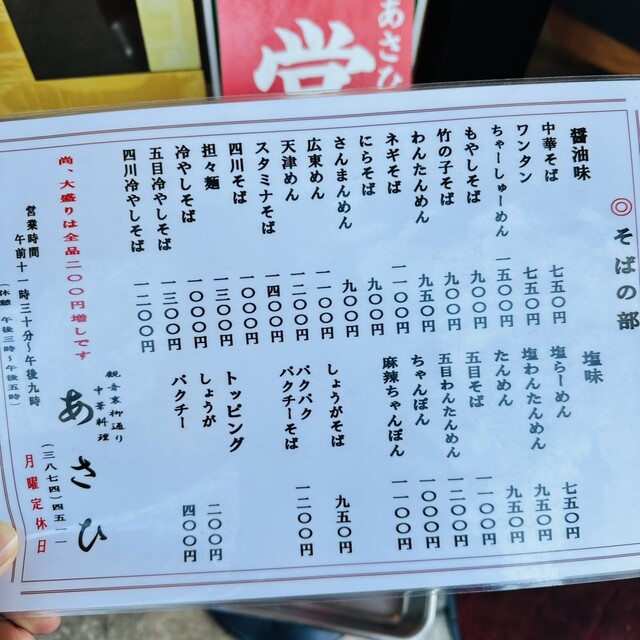 あさひ
◎そばの部
醤油味
中華そば 七五〇円
ワンタン 七五〇円
ちゃーしゅーめん 一五〇〇円
もやしそば 九〇〇円
竹の子そば 九〇〇円
わんたんめん 九五〇円
ネギそば 一一〇〇円
にらそば 九〇〇円
さんまんめん 九〇〇円
広東めん 一一〇〇円
天津めん 一二〇〇円
スタミナそば 一四〇〇円
四川そば 一〇〇〇円
担々麺
冷やしそば 一〇〇〇円
五目冷やしそば 一三〇〇円
四川冷やしそば 一二〇〇円
塩味
塩らーめん 七五〇円
塩わんたんめん 九五〇円
たんめん 九五〇円
五目そば 一一〇〇円
五目わんたんめん 一二〇〇円
ちゃんぽん 一〇〇〇円
麻辣ちゃんぽん 一一〇〇円
しょうがそば 九五〇円
パクパク
パクチーそば 一二〇〇円
トッピング
しょうが 二〇〇円
パクチー 四〇〇円
尚、大盛りは全品二〇〇円増しです
営業時間
午前十一時三十分〜午後九時
(休憩 午後三時〜午後五時)
観音裏柳通り
中華料理
あさひ
(三八七四)四五一一
月曜定休日